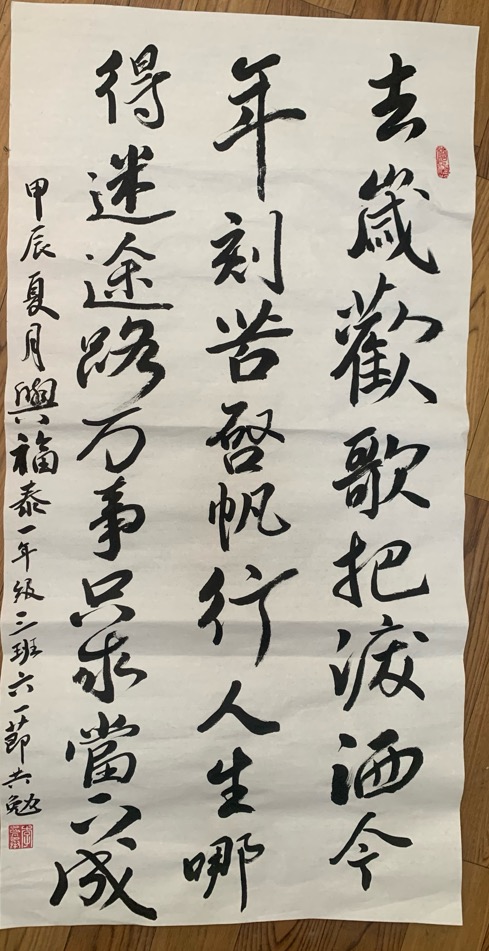 去歲歡歌把淚洒今
年刻苦啓帆行人生哪
得迷途路万事只求當下成
甲辰夏月與福泰一年级三班六一節共勉